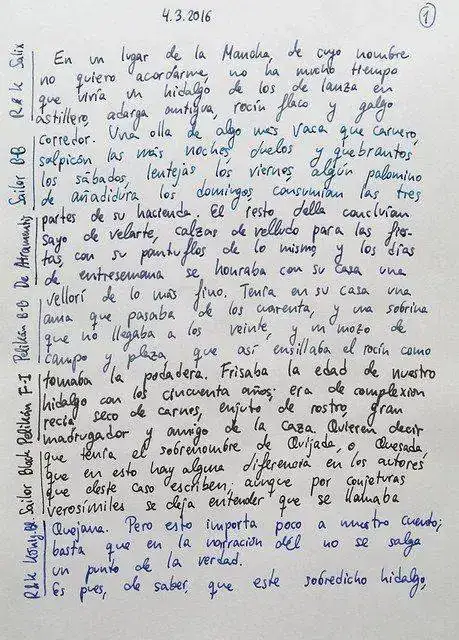 4.3.2016
1
R&K Salix
En un lugar de la Mancha, de cuyo nombre
no quiero acordarme, no ha mucho tiempo
que vivía un hidalgo de los de lanza en
astillero, adarga antigua, rocín flaco y galgo
Sailor B-B
corredor. Una olla de algo más vaca que carnero,
salpicón las más noches, duelos y quebrantos
los sábados, lentejas los viernes, algún palomino
de añadidura los domingos, consumían las tres
De Atramentis
partes de su hacienda. El resto della concluían
sayo de velarte, calzas de velludo para las fies-
tas con su pantuflos de lo mismo, y los días
de entresemana se honraba con su casa una
Pelikan B-B
vellorí de lo más fino. Tenía en su casa una
ama que pasaba de los cuarenta, y una sobrina
que no llegaba a los veinte, y un mozo de
campo y plaza que así ensillaba el rocín como
Pelikan F-I
tomaba la podadera. Frisaba la edad de nuestro
hidalgo con los cincuenta años; era de complexion
recia, seco de carnes, enjuto de rostro, gran
madrugador y amigo de la caza. Quieren decir
Sailor Black
que tenía el sobrenombre de Quijada, o Quesada,
que en esto hay alguna diferencia en los autores
que deste caso escriben; aunque por conjeturas
verosímiles se deja entender que se llamaba
R&K
Quejana. Pero esto importa poco a nuestro cuento;
basta que en la narración dél no se salga
un punto de la verdad.
Es pues, de saber, que este sobredicho hidalgo,